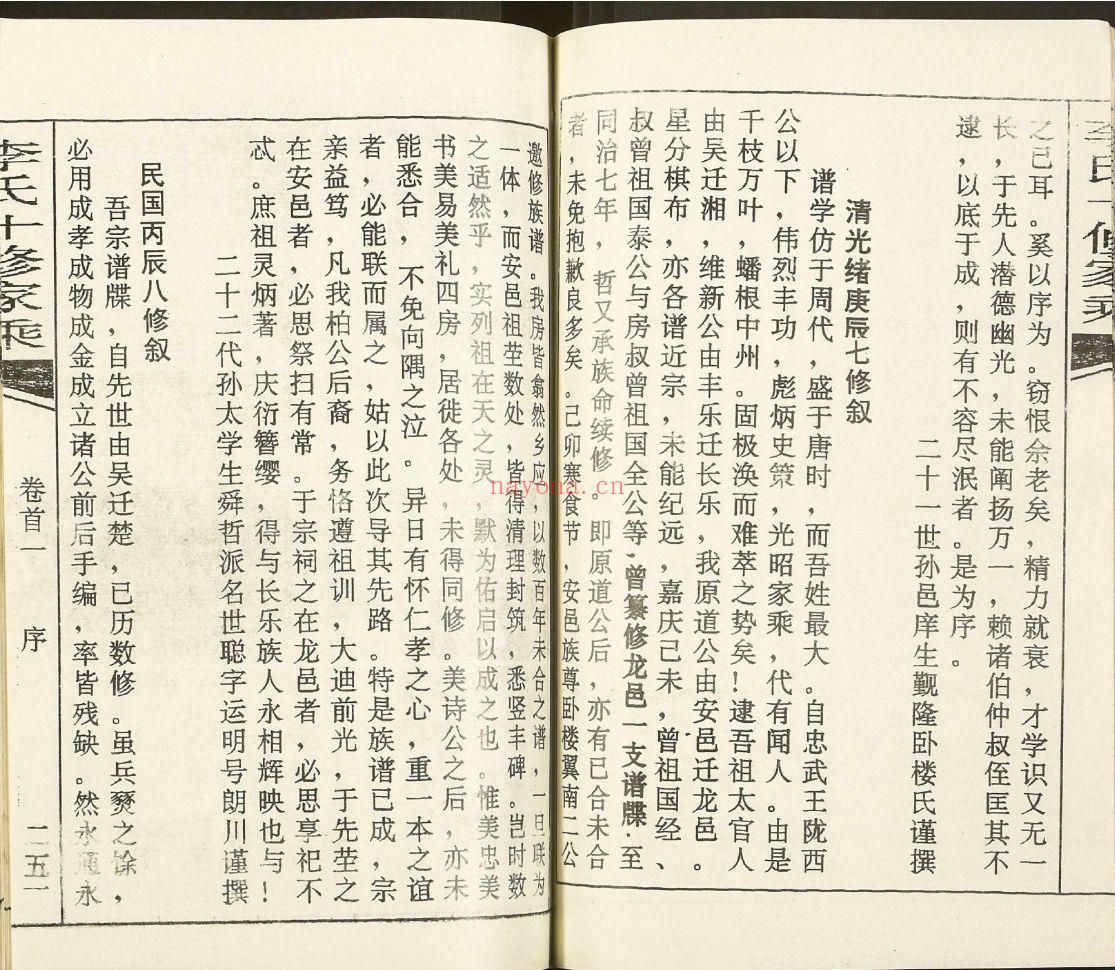 之已耳。奚以序为。窃恨余老矣，精力就衰，才学识又无一
长，于先人潜德幽光，未能阐扬万一，赖诸伯仲叔侄匡其不
逮，以底于成，则有不容尽泯者。是为序。
二十一世孙邑庠生觐隆卧楼氏谨撰
清光绪庚辰七修叙
谱学仿于周代，盛于唐时，而吾姓最大。自忠武王陇西
公以下，伟烈丰功，彪炳史策，光昭家乘，代有闻人。由是
千枝万叶，蟠根中州。固极涣而难萃之势矣！逮吾祖太官人
由吴迁湘，维新公由丰乐迁长乐，我原道公由安邑迁龙邑。
星分棋布，亦各谱近宗，未能纪远，嘉庆己未，曾祖国经、
叔曾祖国泰公与房叔曾祖国全公等·曾纂修龙邑一支谱牒·至
同治七年，哲又承族命续修。即原道公后，亦有已合未合
者，未免抱歉良多矣。己卯寒食节，安邑族尊卧楼翼南二公
邀修族谱。我房皆翕然乡应，以数百年未合之谱，一旦联为
一体，而安邑祖茔数处，皆得清理封筑，悉竖丰碑。岂时数
之适然乎，实列祖在天之灵，默为佑启以成之也。惟美忠美
书美易美礼四房，居徙各处，未得同修。美诗公之后，亦未
能悉合，不免向隅之泣。异日有怀仁孝之心，重一本之谊
者，必能联而属之，姑以此次导其先路。特是族谱已成，宗
亲益笃，凡我柏公后裔，务恪遵祖训，大迪前光，于先茔之
在安邑者，必思祭扫有常。于宗祠之在龙邑者，必思享祀不
忒。庶祖灵炳著，庆衍簪缨，得与长乐族人永相辉映也与！
二十二代孙太学生舜哲派名世聪字运明号朗川谨撰
民国丙辰八修叙
吾宗谱牒，自先世由吴迁楚，已历数修。虽兵燹之馀，
必用成孝成物成金成立诸公前后手编，率皆残缺。然永通永
李氏十修家乘
卷首一
序
二五一
nayona.cn